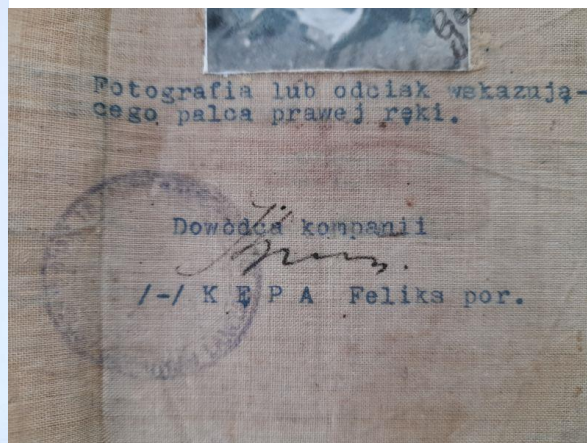 Fotografia lub odcisk wskazują-
cego palca prawej ręki.
Dowódca kompanii
/-/ K Ę P A Feliks por.